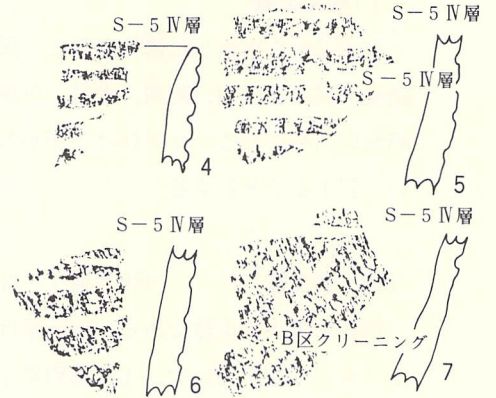 S－5 Ⅳ層
4
S－5 Ⅳ層
S－5 Ⅳ層
5
S－5 Ⅳ層
6
S－5 Ⅳ層
B区クリーニング
7